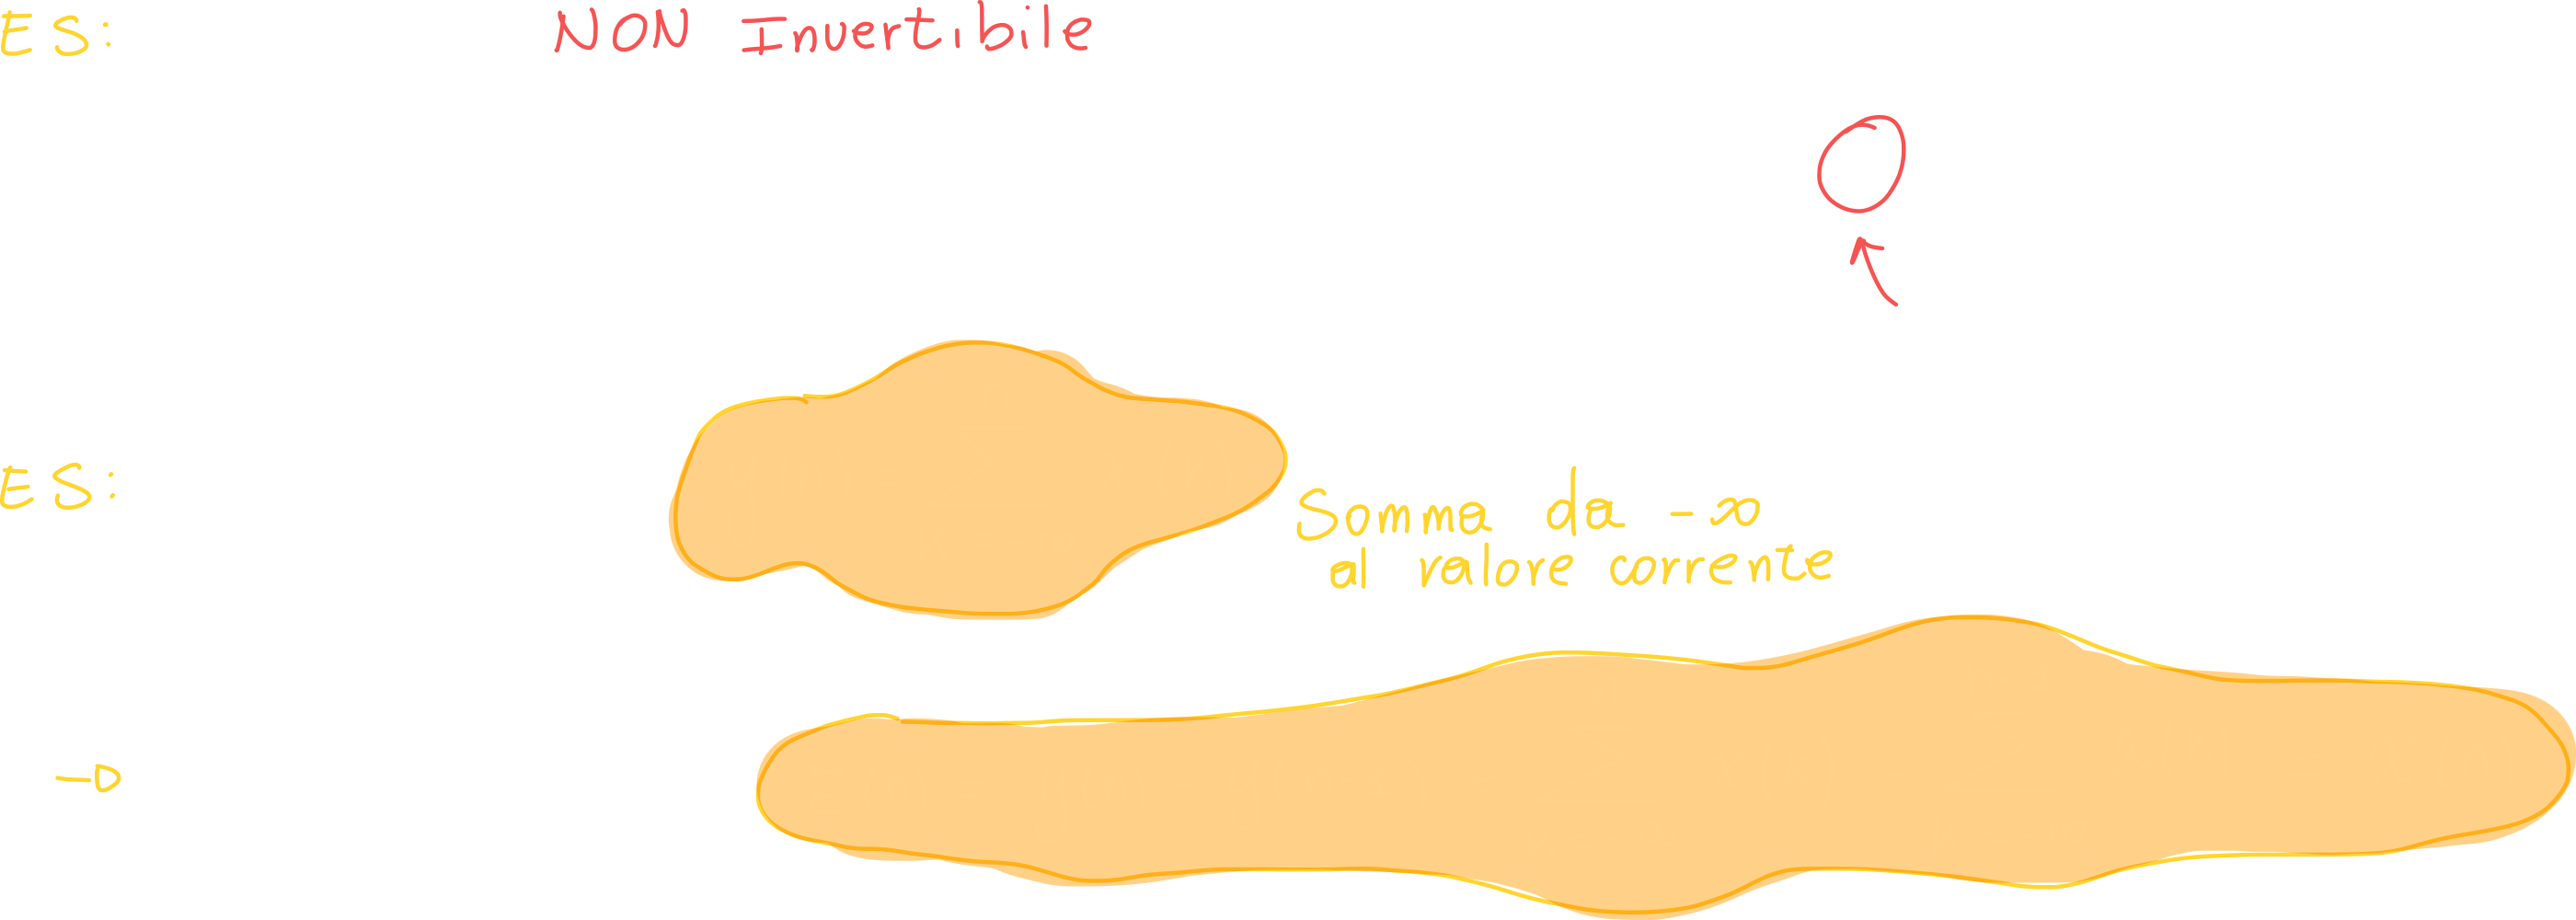 ES: NON Invertibile
ES:
Somma da -∞
al valore corrente